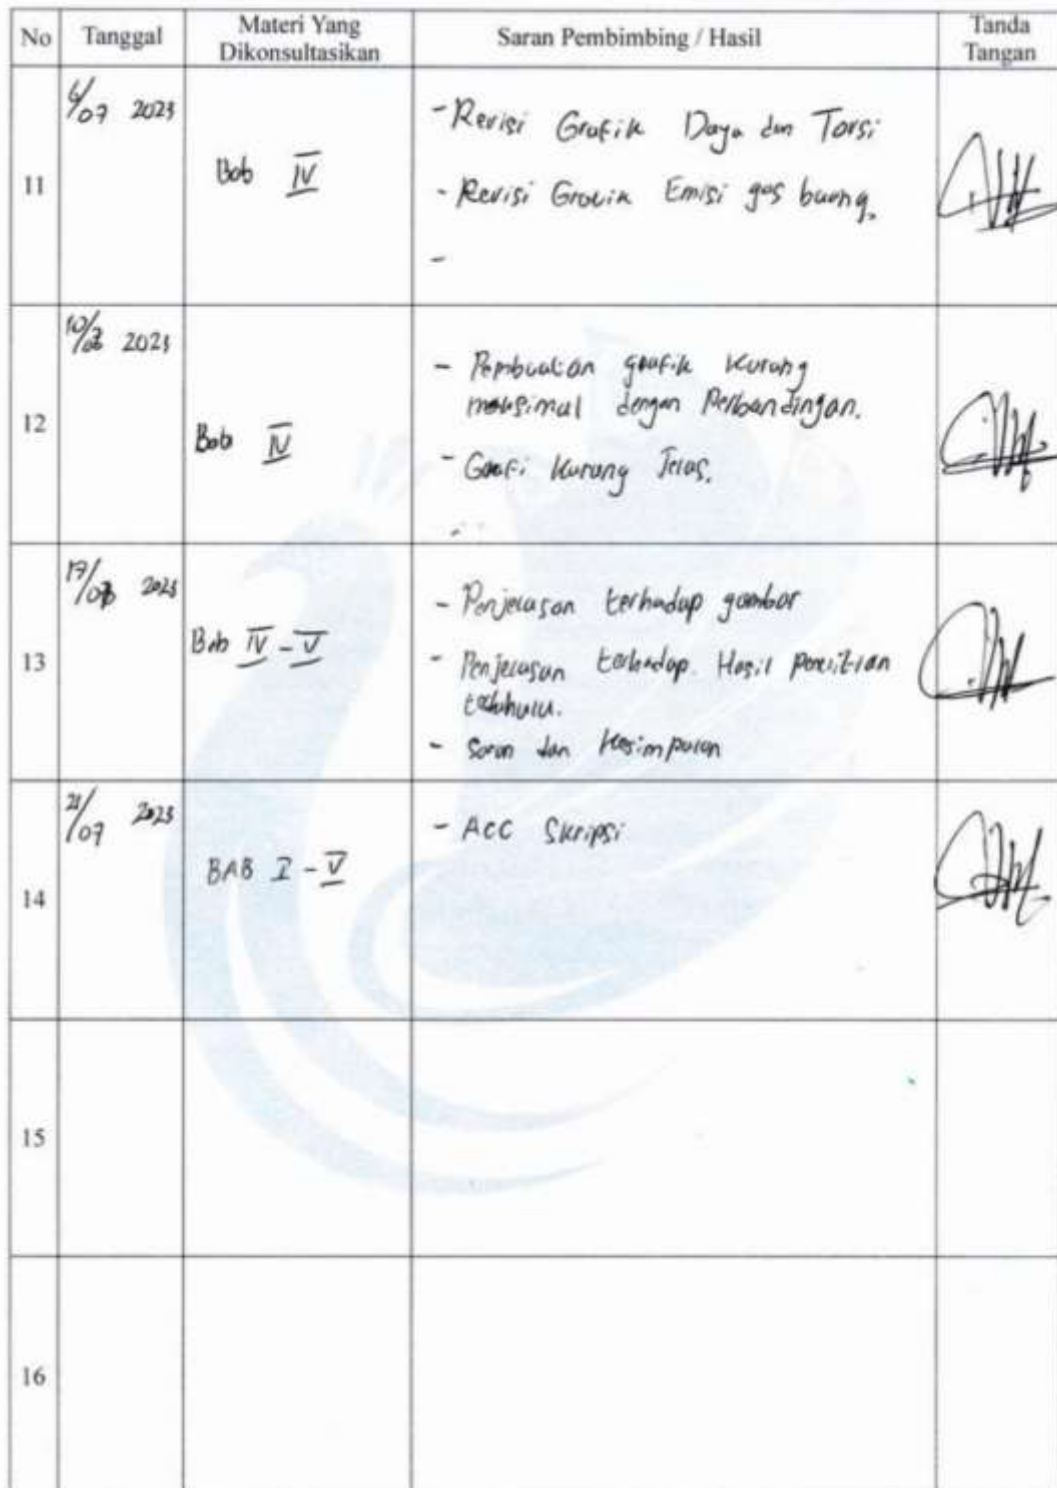 No Tanggal Materi Yang Dikonsultasikan Saran Pembimbing / Hasil Tanda Tangan
11
6/07 2023
Bab IV
- Revisi Grafik Daya dan Torsi
- Revisi Gravik Emisi gas buang.
-
12
10/ 2023
Bab IV
- Pembuatan grafik kurang
maksimal dengan Perbandingan.
- Grafi kurang Jelas.
13
17/07 2023
Bab IV - V
- Penjelasan terhadap gambar
- Penjelasan terhadap. Hasil penelitian
terdahulu.
- Saran dan Kesimpulan
14
21/07 2023
BAB I - V
- Acc Skripsi
15
16